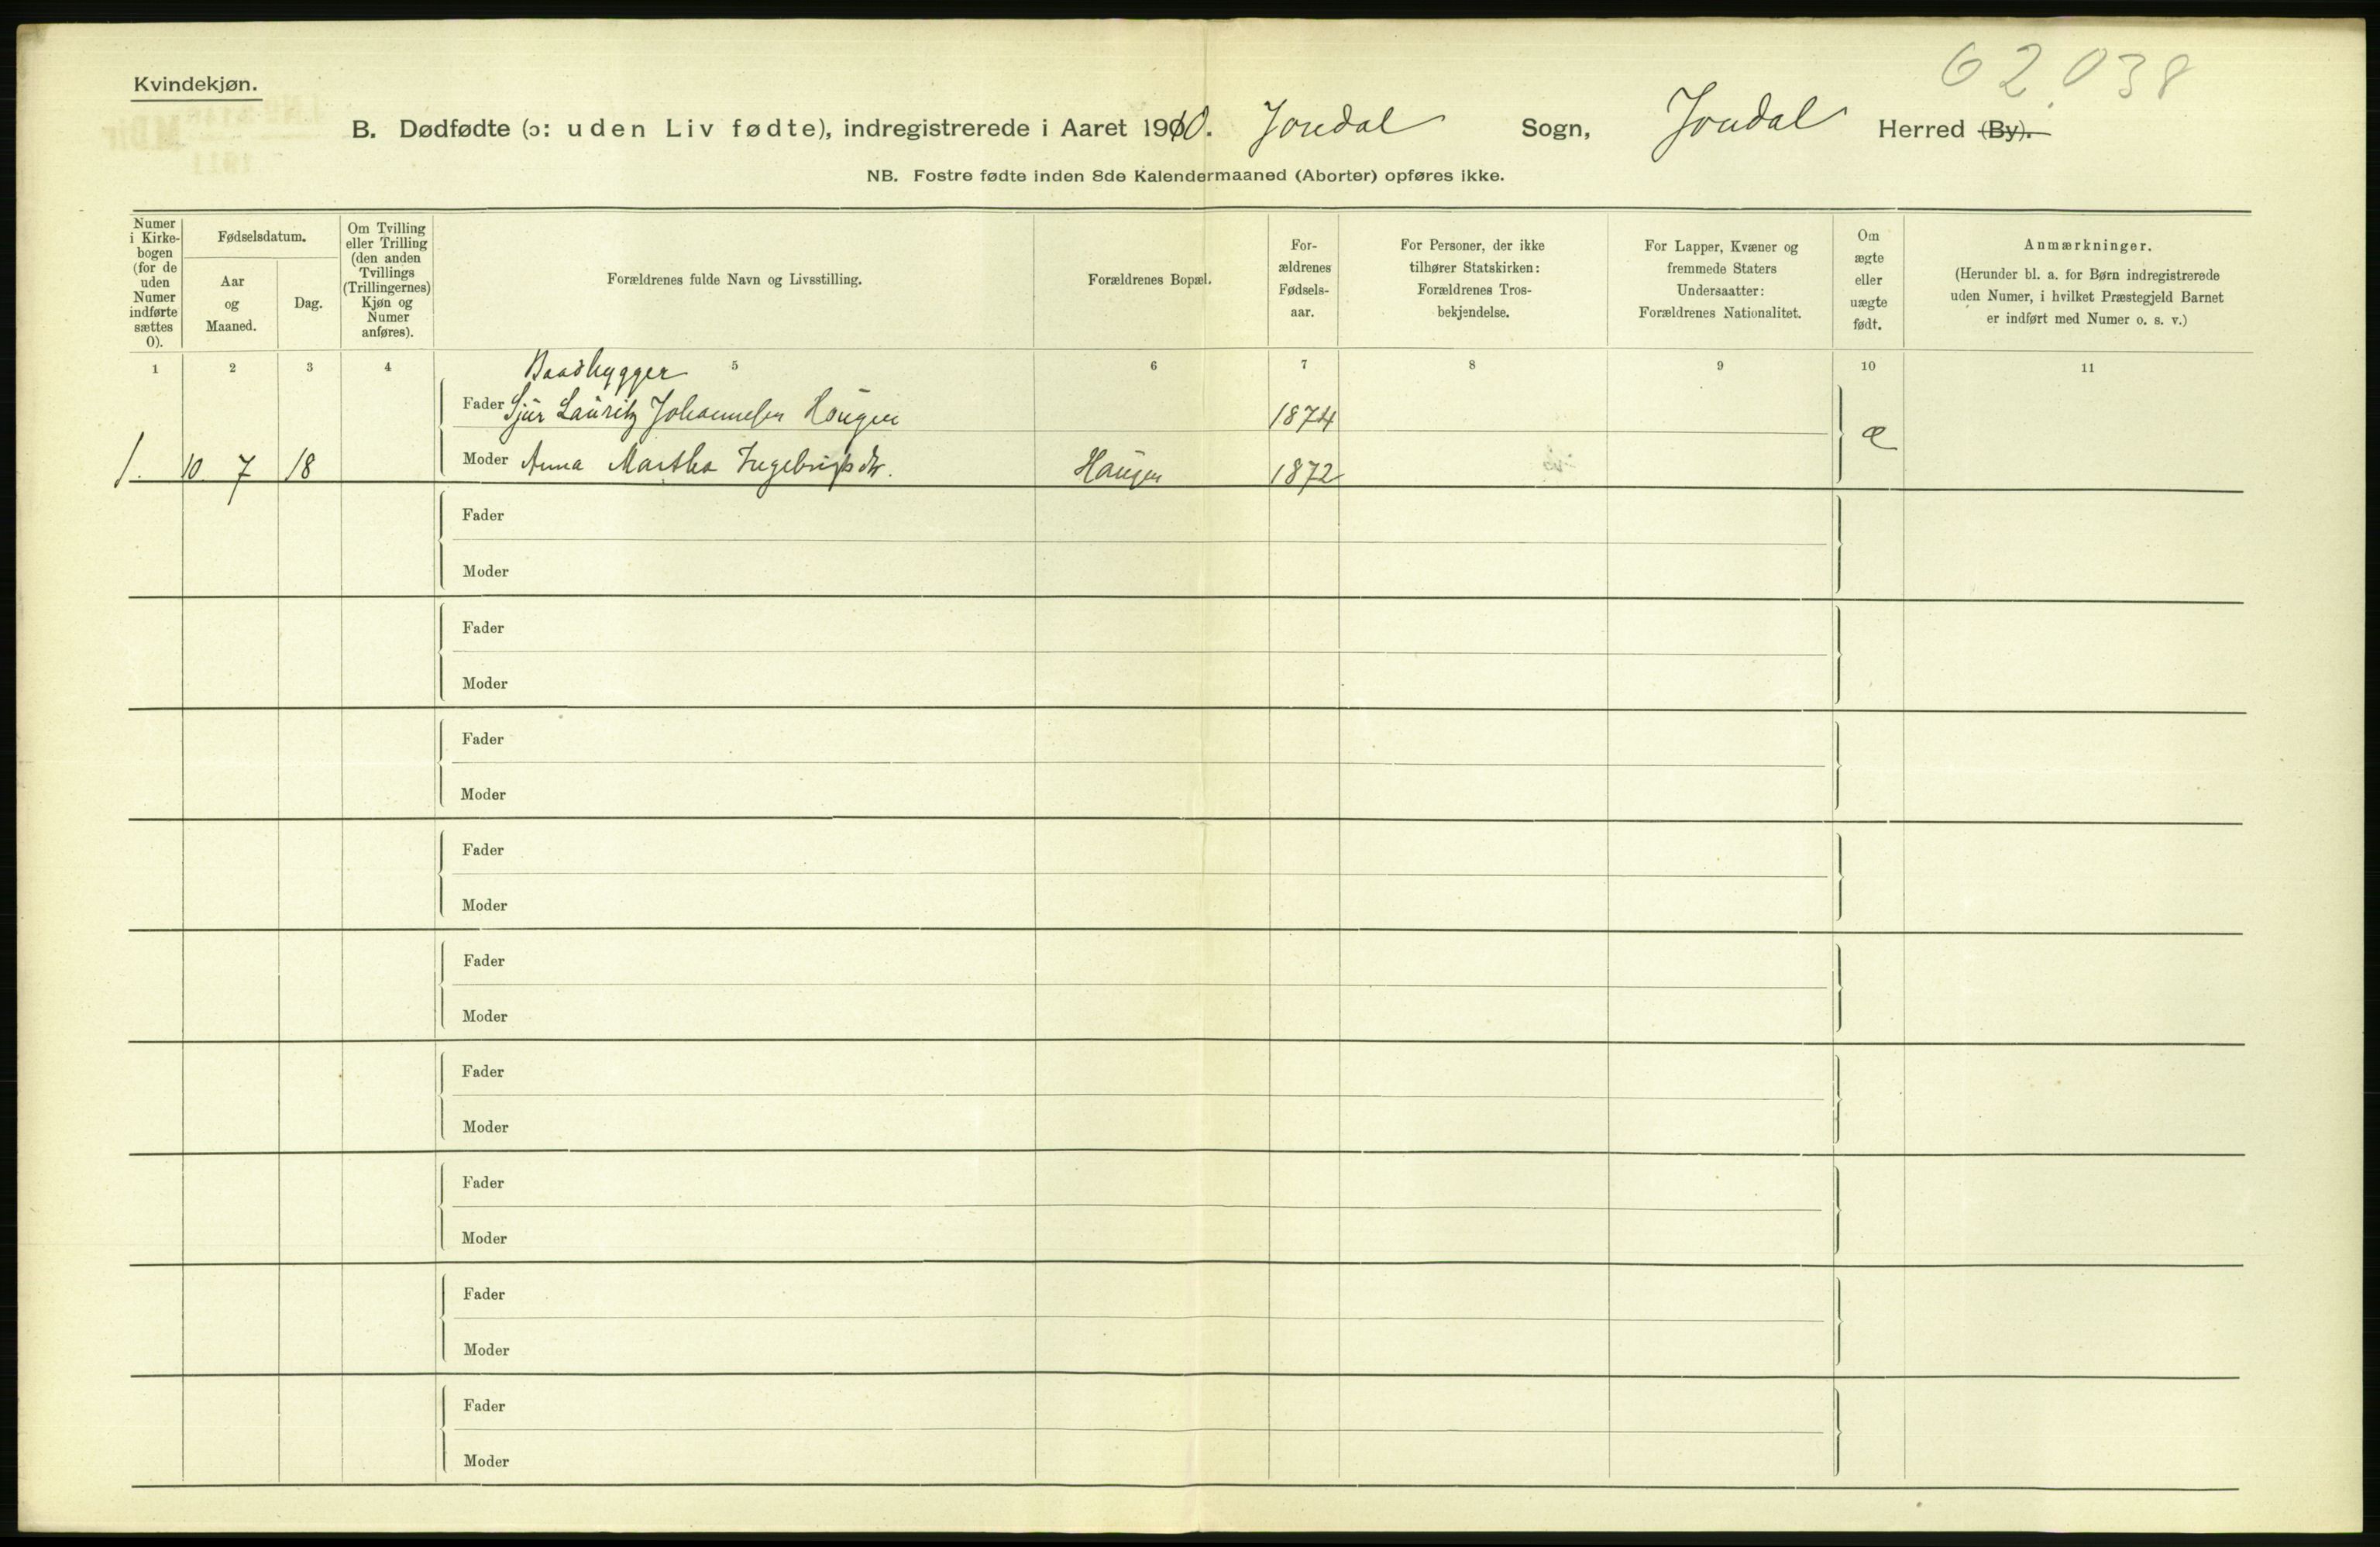 62.038
Kvindekjøn.
B. Dødfødte (ɔ: uden Liv fødte), indregistrerede i Aaret 1910. Jondal Sogn, Jondal Herred (By).
NB. Fostre fødte inden 8de Kalendermaaned (Aborter) opføres ikke.
Numer i Kirke-bogen (for de uden Numer indførte sættes 0).
Fødselsdatum.
Aar og Maaned.
Dag.
Om Tvilling eller Trilling (den anden Tvillings (Trillingernes) Kjøn og Numer anføres).
Forældrenes fulde Navn og Livsstilling.
Forældrenes Bopæl.
For-ældrenes Fødsels-aar.
For Personer, der ikke tilhører Statskirken: Forældrenes Tros-bekjendelse.
For Lapper, Kvæner og fremmede Staters Undersaatter: Forældrenes Nationalitet.
Om ægte eller uægte født.
Anmærkninger.
(Herunder bl. a. for Børn indregistrerede uden Numer, i hvilket Præstegjeld Barnet er indført med Numer o. s. v.)
1 2 3 4 5 6 7 8 9 10 11
Baadbygger
Fader Sjur Lauritz Johannesen Haugen 1874
æ
1. 10 7 18 Moder Anna Martha Ingebrigtsdtr. Haugen 1872
Fader
Moder
Fader
Moder
Fader
Moder
Fader
Moder
Fader
Moder
Fader
Moder
Fader
Moder
Fader
Moder
Fader
Moder